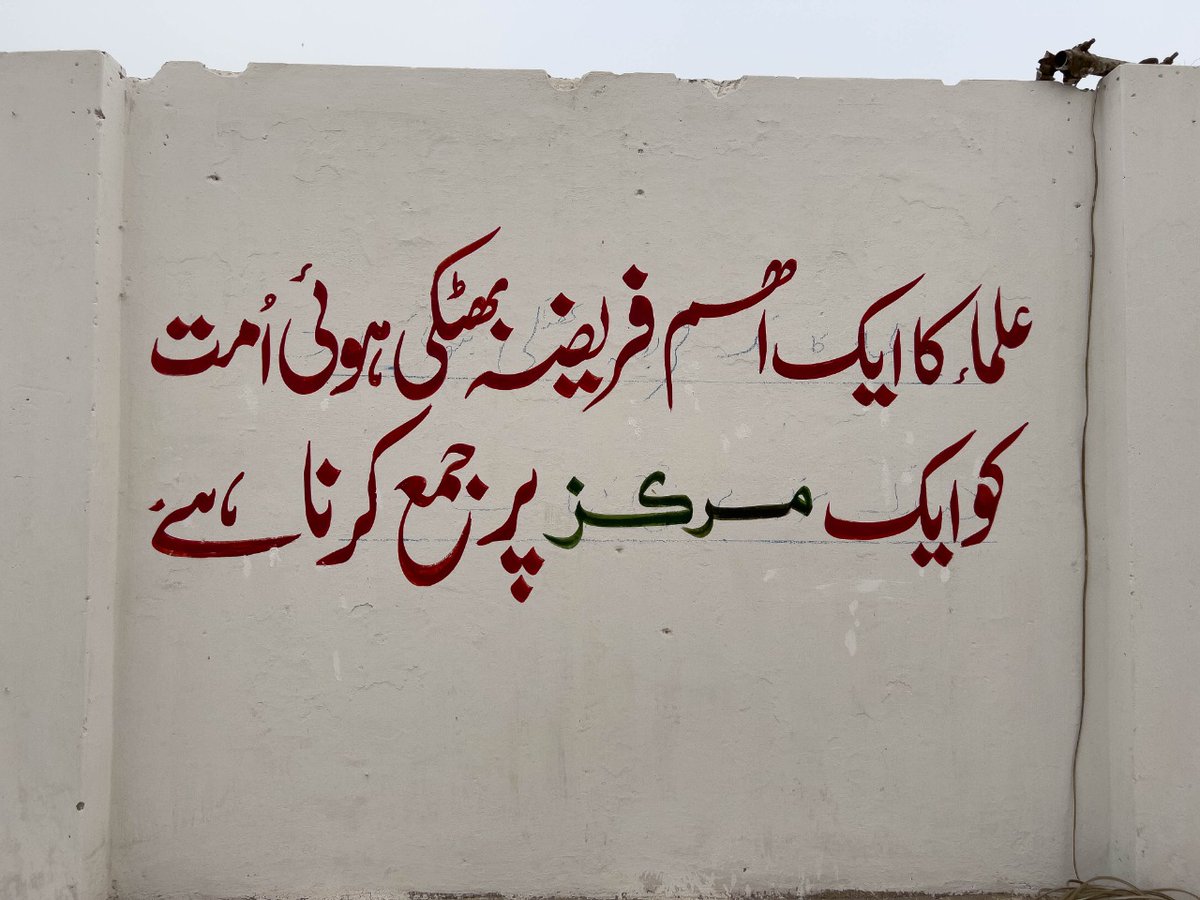 علماء کا ایک اھم فریضہ بھٹکی ہوئی اُمت
کو ایک مرکز پر جمع کرنا ہے